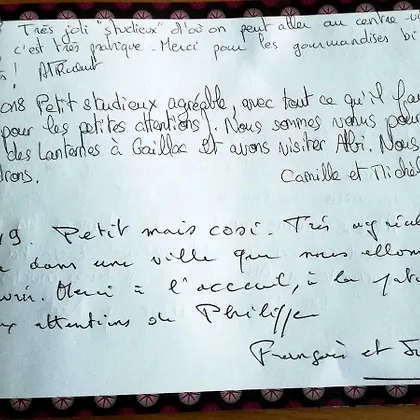 Très joli "studieux" d'où on peut aller au centre
c'est très pratique. Merci pour les gourmandises
!
018 Petit studieux agréable, avec tout ce qu'il
pour les petites attentions). Nous sommes venus pour
des Lanternes à Gaillac et avons visiter Albi. Nous
drons. Camille et
19. Petit mais cosi. Très
dans une ville que nous allons
. Merci à l'acceuil, à la
attentions de Philippe
François et